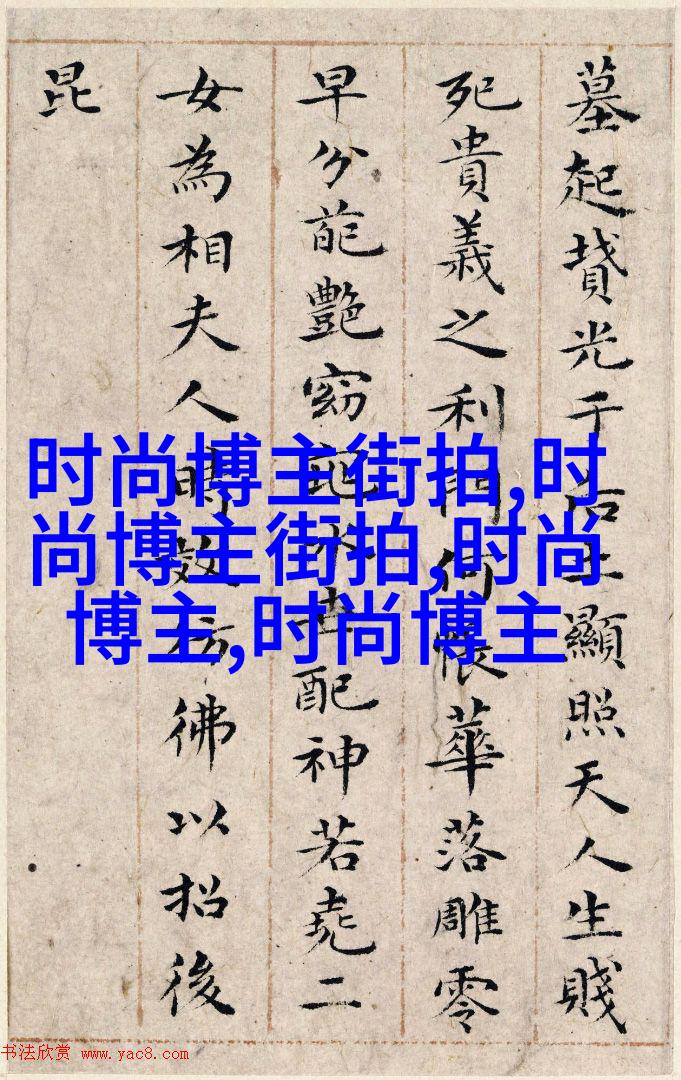 墓起墳光于后土顯照天人生賤
死貴義之利門何悵華落雕零
早分葩艷窈窕永世配神若堯二
女為相夫人時效彷彿以招後
昆
时尚博主街拍,时
尚博主街拍,时尚
博主,时尚博主
书法欣赏 www.yac8.com